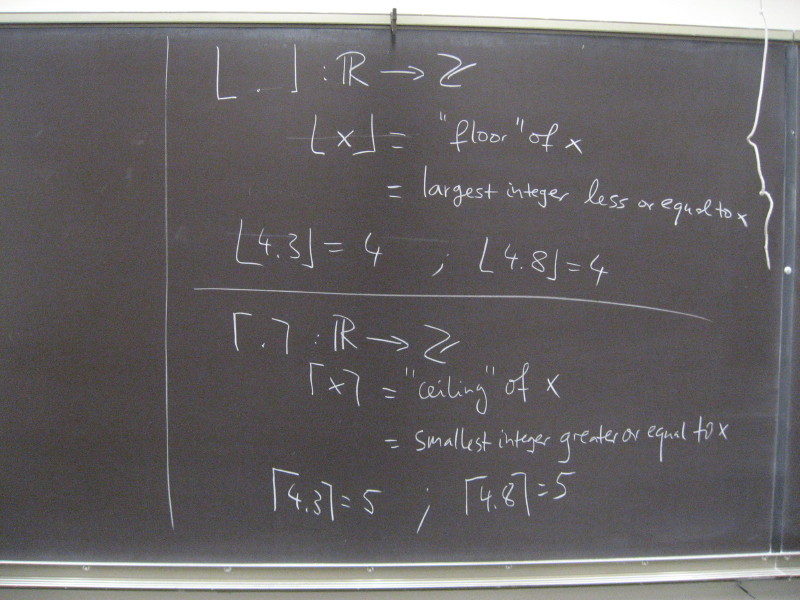 ⌊.⌋ : ℝ → ℤ
⌊x⌋ = "floor" of x
= largest integer less or equal to x
⌊4.3⌋ = 4 ; ⌊4.8⌋ = 4
⌈.⌉ : ℝ → ℤ
⌈x⌉ = "ceiling" of x
= smallest integer greater or equal to x
⌈4.3⌉ = 5 ; ⌈4.8⌉ = 5